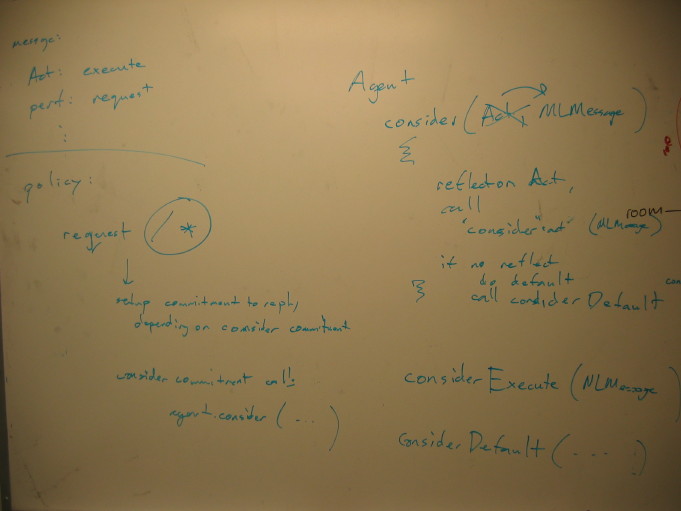 message:
Act: execute
perf: request
:
policy:
request / *
setup commitment to reply,
depending on consider commitment
consider commitment call:
agent.consider (...)
Agent
consider (Act, MLMessage)
{
reflect on Act,
call
"consider" (MLMessage)
if no reflect
do default
call consider Default
}
consider Execute (MLMessage
Consider Default (....)
room